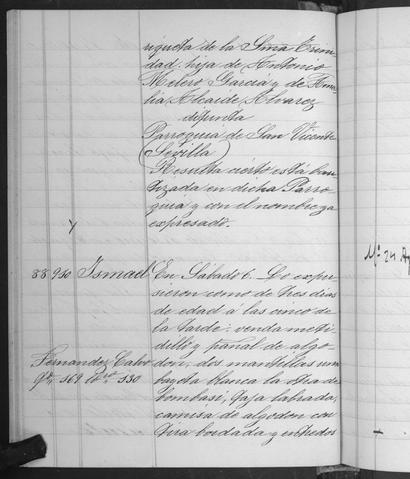 riqueta de la Sma Trini
dad, hija de Antonio
Melero García y de Ame
lia Alcaide Alvarez
difunta
Parroquia de San Vicente
(Sevilla)
Resulta cierto está bau
tizada en dicha Parro
quia y con el nombre ya
expresado.
88950 Ismael
En Sábado 6. Lo expu
sieron como de tres dias
de edad a las cinco de
la tarde: venda meti
dillo y pañal de algo
don, dos mantillas una
bayeta blanca la otra de
bombasi, faja labrada,
camisa de algodon con
tira bordada y entredos
Fernandez Calvo
569 530